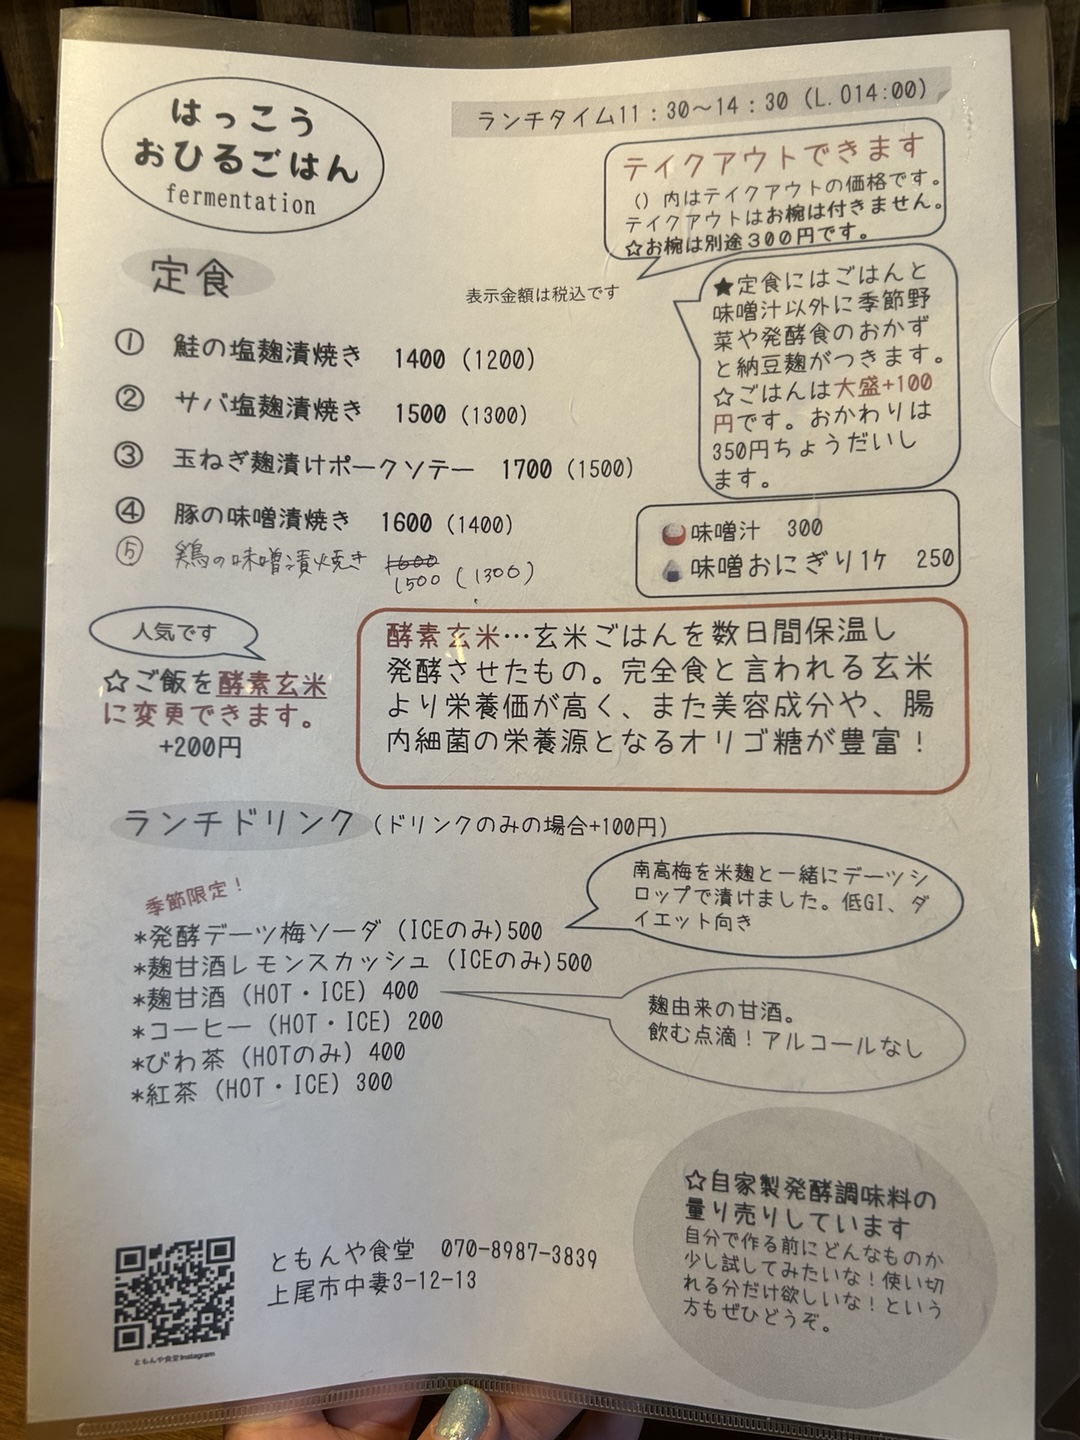 はっこう
おひるごはん
fermentation
ランチタイム11：30～14：30 (L.O14:00)
テイクアウトできます
（）内はテイクアウトの価格です。
テイクアウトはお椀は付きません。
☆お椀は別途３００円です。
定食
表示金額は税込です
① 鮭の塩麹漬焼き 1400 (1200)
② サバ塩麹漬焼き 1500 (1300)
③ 玉ねぎ麹漬けポークソテー 1700 (1500)
④ 豚の味噌漬焼き 1600 (1400)
⑤ 鶏の味噌漬焼き 1600
1500 (1300)
★定食にはごはんと
味噌汁以外に季節野
菜や発酵食のおかず
と納豆麹がつきます。
☆ごはんは大盛+100
円です。おかわりは
350円ちょうだいし
ます。
味噌汁 300
味噌おにぎり1ケ 250
人気です
☆ご飯を酵素玄米
に変更できます。
+200円
酵素玄米…玄米ごはんを数日間保温し
発酵させたもの。完全食と言われる玄米
より栄養価が高く、また美容成分や、腸
内細菌の栄養源となるオリゴ糖が豊富！
ランチドリンク (ドリンクのみの場合+100円)
季節限定！
*発酵デーツ梅ソーダ (ICEのみ)500
*麹甘酒レモンスカッシュ (ICEのみ)500
*麹甘酒 (HOT・ICE) 400
*コーヒー (HOT・ICE) 200
*びわ茶 (HOTのみ) 400
*紅茶 (HOT・ICE) 300
南高梅を米麹と一緒にデーツシ
ロップで漬けました。低GI、ダ
イエット向き
麹由来の甘酒。
飲む点滴！アルコールなし
☆自家製発酵調味料の
量り売りしています
自分で作る前にどんなものか
少し試してみたいな！使い切
れる分だけ欲しいな！という
方もぜひどうぞ。
ともんや食堂 070-8987-3839
上尾市中妻3-12-13
ともんや食堂Instagram